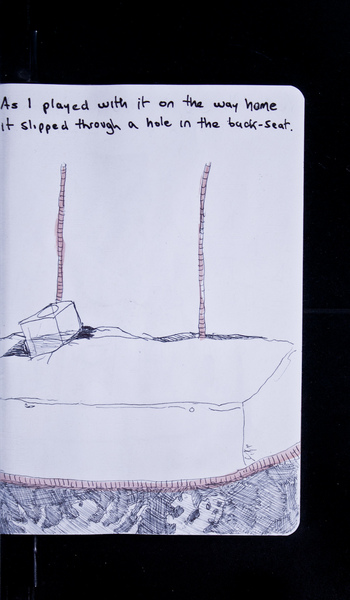 As I played with it on the way home
it slipped through a hole in the back-seat.